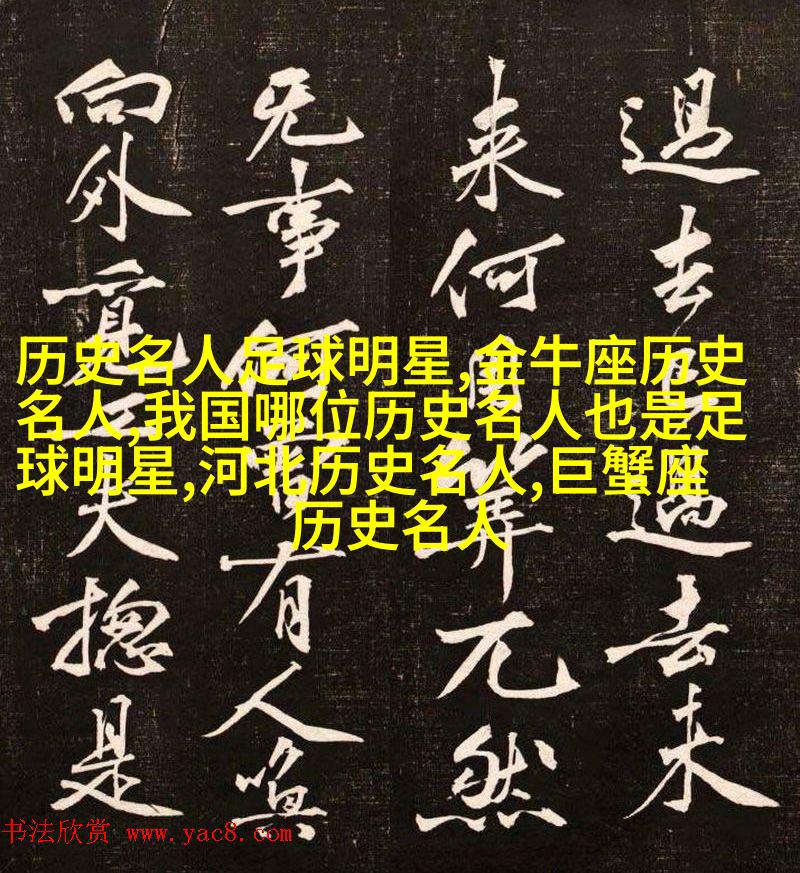 過去已過去未
来何用筭兀然
无事何曾有人喚
向外覓工夫摠是
历史名人足球明星,金牛座历史
名人,我国哪位历史名人也是足
球明星,河北历史名人,巨蟹座
历史名人
书法欣赏 www.yac8.com